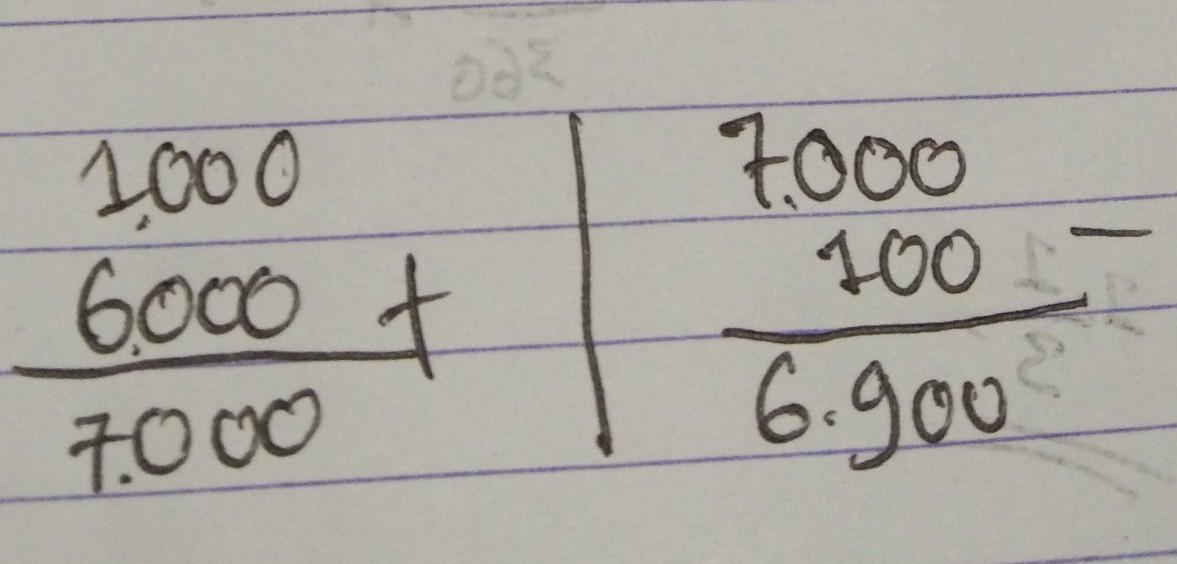 1.000
6.000 +
7.000
7.000
100 -
6.900